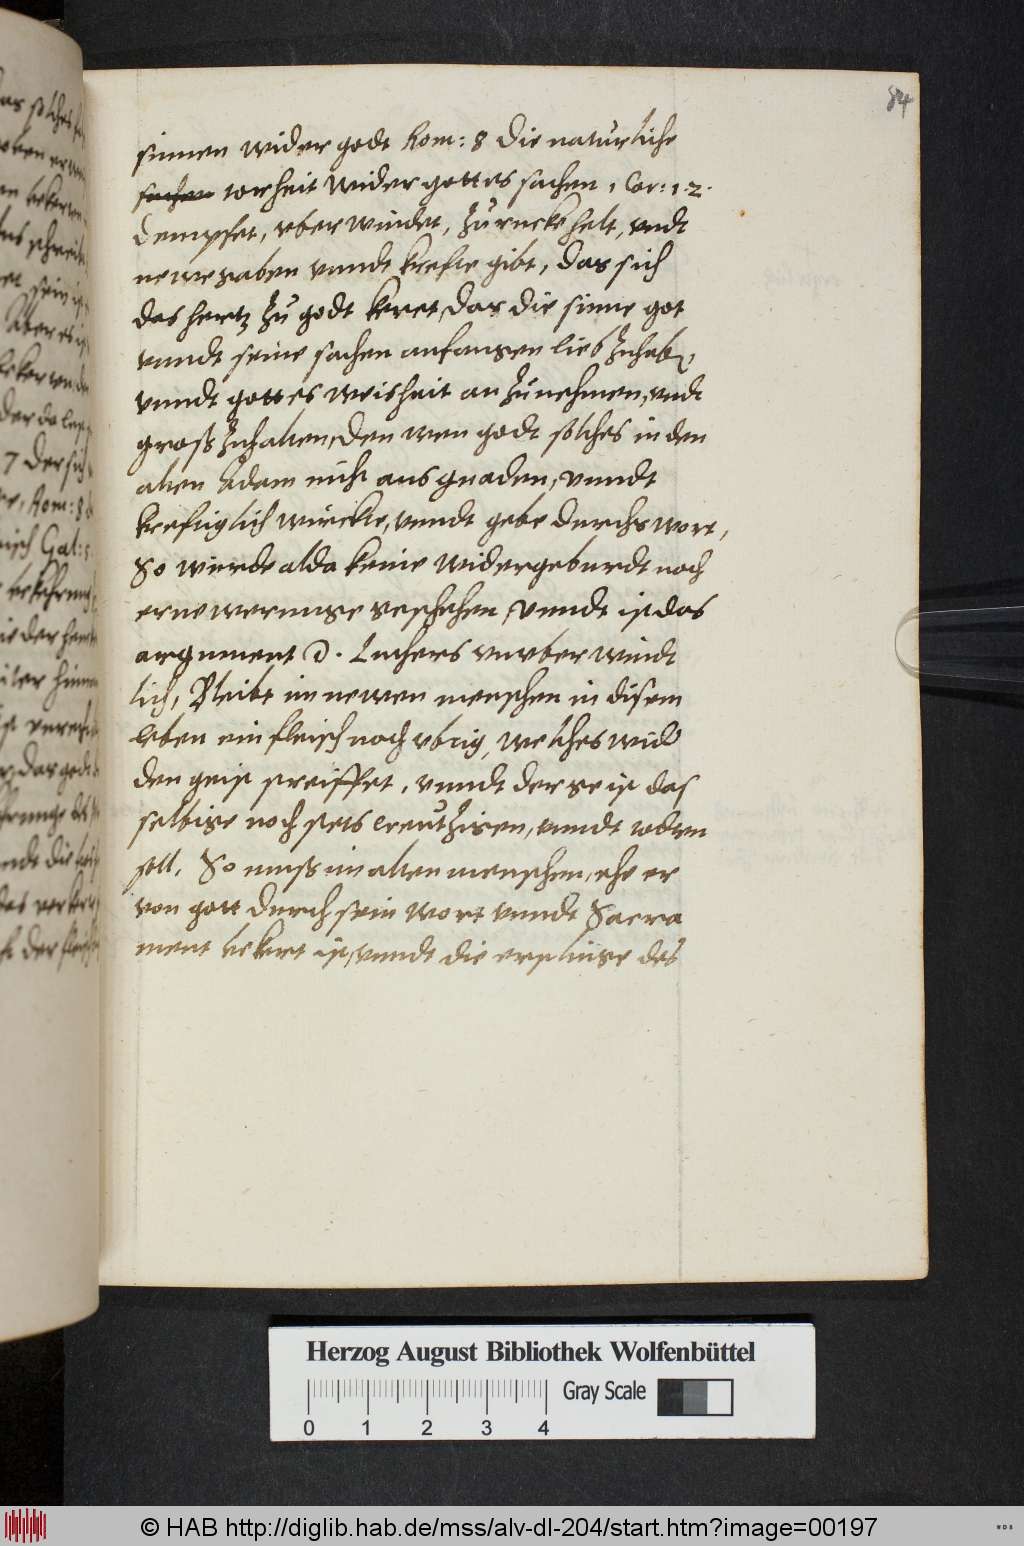 84
sinnen wider godt Rom: 8 die naturliche
sachen torheit wider gottes sachen 1 Cor: 1. 2.
dempfet, vberwindet, zuruckhelt, vndt
newe gaben vnndt krefte gibt, das sich
das hertz zu godt keret, das die sinne got
vnndt seine sachen anfangen lieb zuhabn,
vnndt gottes weisheit anzunehmen, vndt
gross zuhalten, den wen godt solches in den
alten Adam nicht aus gnaden, vnndt
krefftiglich wirckte, vnndt gebe durchs wort,
So wurde alda keine widergeburdt noch
ernewerunge geschehen, vnndt ist das
argument D. Luthers vnvberwindt
lich, Bleibt im newen menschen in disem
leben ein fleisch noch vbrig, welches wider
den geist streittet, vnndt der geist das
selbige noch stets creutzigen, vnndt todten
soll. So muss im alten menschen, ehe er
von gott durch sein wort vnndt Sacra
ment bekert ist, vnndt die erstlinge des
Herzog August Bibliothek Wolfenbüttel
Gray Scale
0 1 2 3 4
© HAB http://diglib.hab.de/mss/alv-dl-204/start.htm?image=00197